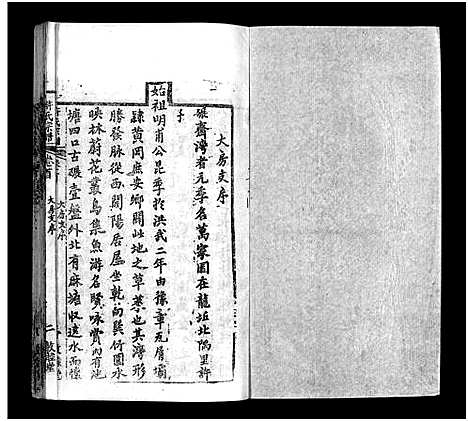 大房支序
碾齋灣者元季名萬家園在龍坵北隅里許
始祖明甫公昆季於洪武二年由豫章瓦屑壩
隸黃岡庶安鄉開此地之草萊也其灣形
勝發脉從西關陽居屋坐乾向巽衍圍水
映林蔚花叢鳥集魚游名賢咏賞內有池
塘四口古碾壹盤外北有麻塘收遠水而
許氏宗譜
卷首
大房支序
二
敦